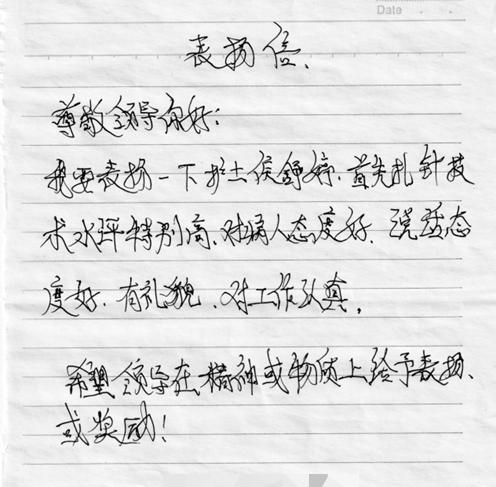 Date
表扬信.
尊敬领导你好:
我要表扬一下护士侯舒婷.首先扎针技
术水平特别高.对病人态度好.说话态
度好.有礼貌.对工作认真.
希望领导在精神或物质上给予表扬、
或奖励!